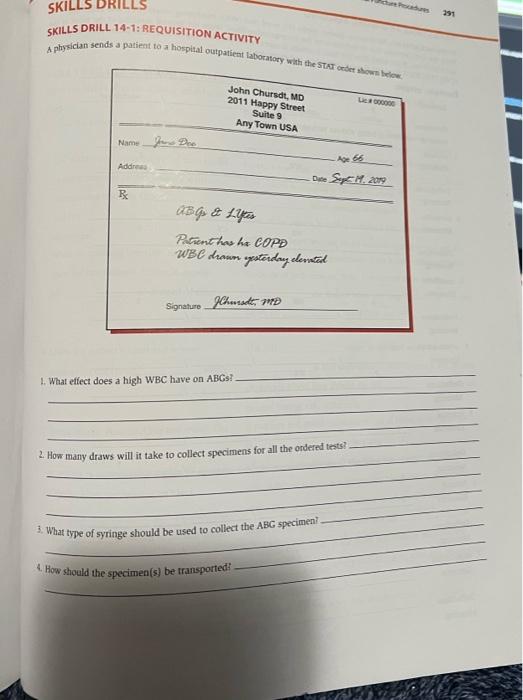 SKILLS DRILLS
Procedures 291
SKILLS DRILL 14-1: REQUISITION ACTIVITY
A physician sends a patient to a hospital outpatient laboratory with the STAT order shown below.
John Chursdt, MD
2011 Happy Street
Suite 9
Any Town USA
Lic # 000000
Name Jane Doe Age 66
Address Date Sept 19, 2019
Rx
ABGs & Lytes
Patient has hx COPD
WBC drawn yesterday elevated
Signature JChursdt, MD
1. What effect does a high WBC have on ABGs?
2. How many draws will it take to collect specimens for all the ordered tests?
3. What type of syringe should be used to collect the ABG specimen?
4. How should the specimen(s) be transported?